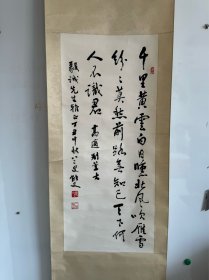 千里黄雲白日曛北風吹雁雪
紛〻莫愁前路無知己天下何
人不識君 高適別董大
毅誠先生雅正丁丑